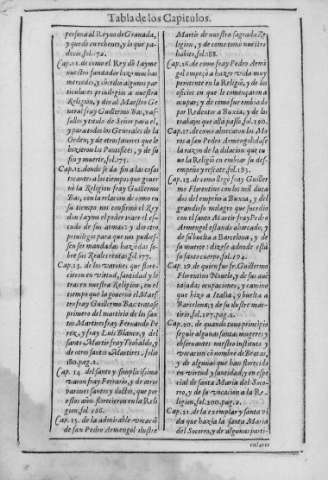 Tabla de los Capitulos.
persona al Reyno de Granada,
y que de en rehenes, y lo que pa-
decio, fol. 172.
Cap. 11. de como el Rey dõ Iayme
nuestro fundador hizo muchas
mercedes, y cõcedio algunos par-
ticulares priuilegios a nuestra
Religion, y dio al Maestro Ge
neral fray Guillermo Bas, va-
sallos y titulo de Señor para el,
y para todos los Generales de la
Orden, y de otros fauores que le
hizieron los Pontifices, y de su
fin y muerte, fol. 175.
Cap. 12. donde se da fin a las cosas
tocantes a los tiempos que gouer
nò la Religion fray Guillermo
Bas, con la relacion de como en
su tiempo nos confirmò el Rey
don Iayme el poder traer el escu-
do de sus armas: y da otro
priuilegio para que
ser mandadas hazer de so-
bre sus Reales rentas, 177.
Cap. 13. de los varones, que flore-
cieron en virtud, santidad y le
tras en nuestra Religion, en el
tiempo que la gouernò el Maes
tro fray Guillermo Bas: trata se
primero del martirio de los san-
tos Martires fray Fernando Pe-
rez, y fray Luis Blanco, y del
santo Martir fray Teobaldo, y
de otros santos Martires, folio
180. pag. 2.
Cap. 14. del santo y simplicissimo
varon fray Ferrario, y de otros
varones santos y doctos, que por
estos años florecieron en la Reli
gion, fol. 186.
Cap. 15. de la admirable vocaciõ
de san Pedro Armengol ilustre
Martir de nuestra sagrada Re
ligion, y de como tomo nuestro
habito, fol. 188.
Cap. 16. de como fray Pedro Armẽ
gol empeçò a hazer vida muy
penitente en la Religiõ, y de los
oficios en que le començaron a
ocupar; y de como fue embiado
por Redentor a Buxia, y de los
trabajos que alla passò, fol. 190.
Cap. 17. de como ahorcaron los Mo
ros a san Pedro Armengol: dase
la razon de la dilacion que tu-
uo la Religiõ en embiar su des-
empeño y rescate, fol. 193.
Cap. 18. de como llegò fray Guiller
mo Florentino con los mil duca
dos del empeño a Buxia, y del
grandioso milagro que sucedio
con el santo Martir fray Pedro
Armengol estando ahorcado, y
de su buelta a Barcelona, y de
su muerte: dizese adonde està
su santo cuerpo, fol. 194.
Cap. 19. de quien fue fr. Guillermo
Florentino Pisano, y de sus
ocupaciones, y camino
que hizo a Italia, y buelta a
Barcelona; y de su ilustre mar-
tirio, fol. 197. pag. 2.
Cap. 20. de quando tuuo principio
seguir algunas santas mugeres y
obseruantes nuestro instituto y
vocacion con nombre de Beatas,
y de algunas que han florecido
en virtud y santidad, y en espe
cial de santa Maria del Soco-
rro, y de su vocacion a la Re-
ligion, fol. 200. pag. 2.
Cap. 21. de la exemplar y santa vi
da que hazia la santa Maria
del Socorro, y de algunas parti-
culares